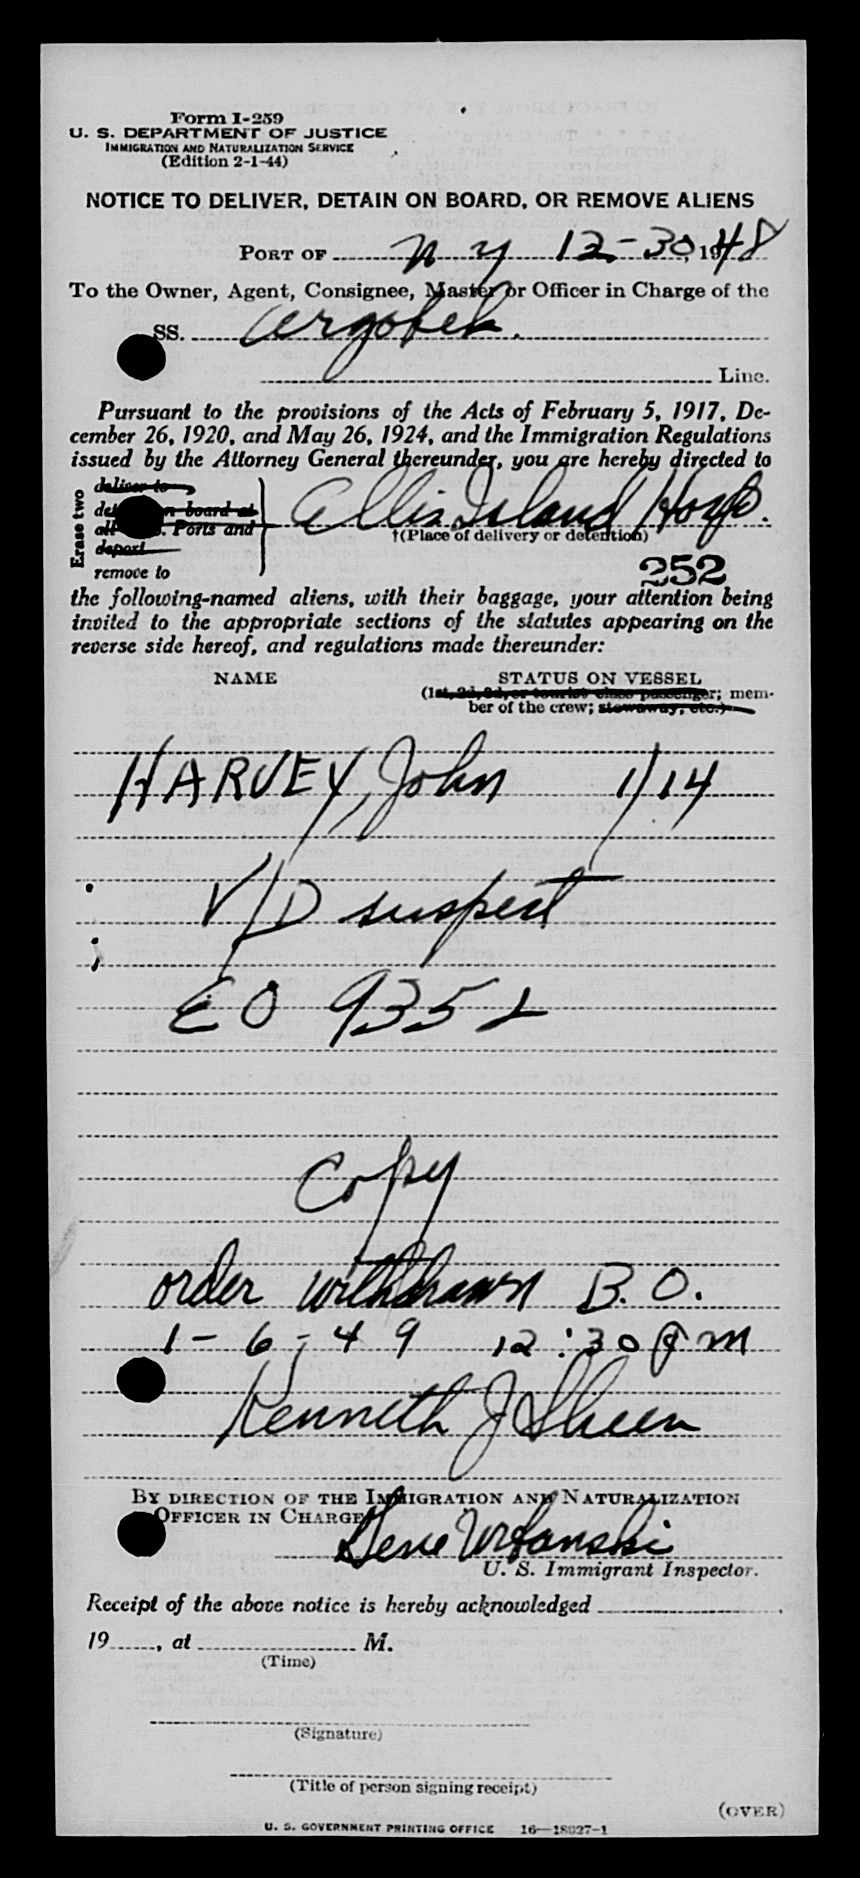 Form I-259
U. S. DEPARTMENT OF JUSTICE
IMMIGRATION AND NATURALIZATION SERVICE
(Edition 2-1-44)
NOTICE TO DELIVER, DETAIN ON BOARD, OR REMOVE ALIENS
PORT OF N Y 12-30, 1948
To the Owner, Agent, Consignee, Master or Officer in Charge of the
SS. Argobek.
Line.
Pursuant to the provisions of the Acts of February 5, 1917, De-
cember 26, 1920, and May 26, 1924, and the Immigration Regulations
issued by the Attorney General thereunder, you are hereby directed to
Erase two
deliver to
board at
Ports and
deport
remove to
Ellis Island Hosp.
†(Place of delivery or detention)
252
the following-named aliens, with their baggage, your attention being
invited to the appropriate sections of the statutes appearing on the
reverse side hereof, and regulations made thereunder:
NAME STATUS ON VESSEL
(1st, 2d, 3d, or tourist class passenger; mem-
ber of the crew; stowaway, etc.)
HARVEY, John 1/14
V/D suspect
EO 9352
Copy
order withdrawn B. O.
1-6-49 12:30 P M
Kenneth J Sheen
BY DIRECTION OF THE IMMIGRATION AND NATURALIZATION
OFFICER IN CHARGE
Gene Urbanski
U. S. Immigrant Inspector.
Receipt of the above notice is hereby acknowledged
19, at M.
(Time)
(Signature)
(Title of person signing receipt)
(OVER)
U. S. GOVERNMENT PRINTING OFFICE 16—18027-1